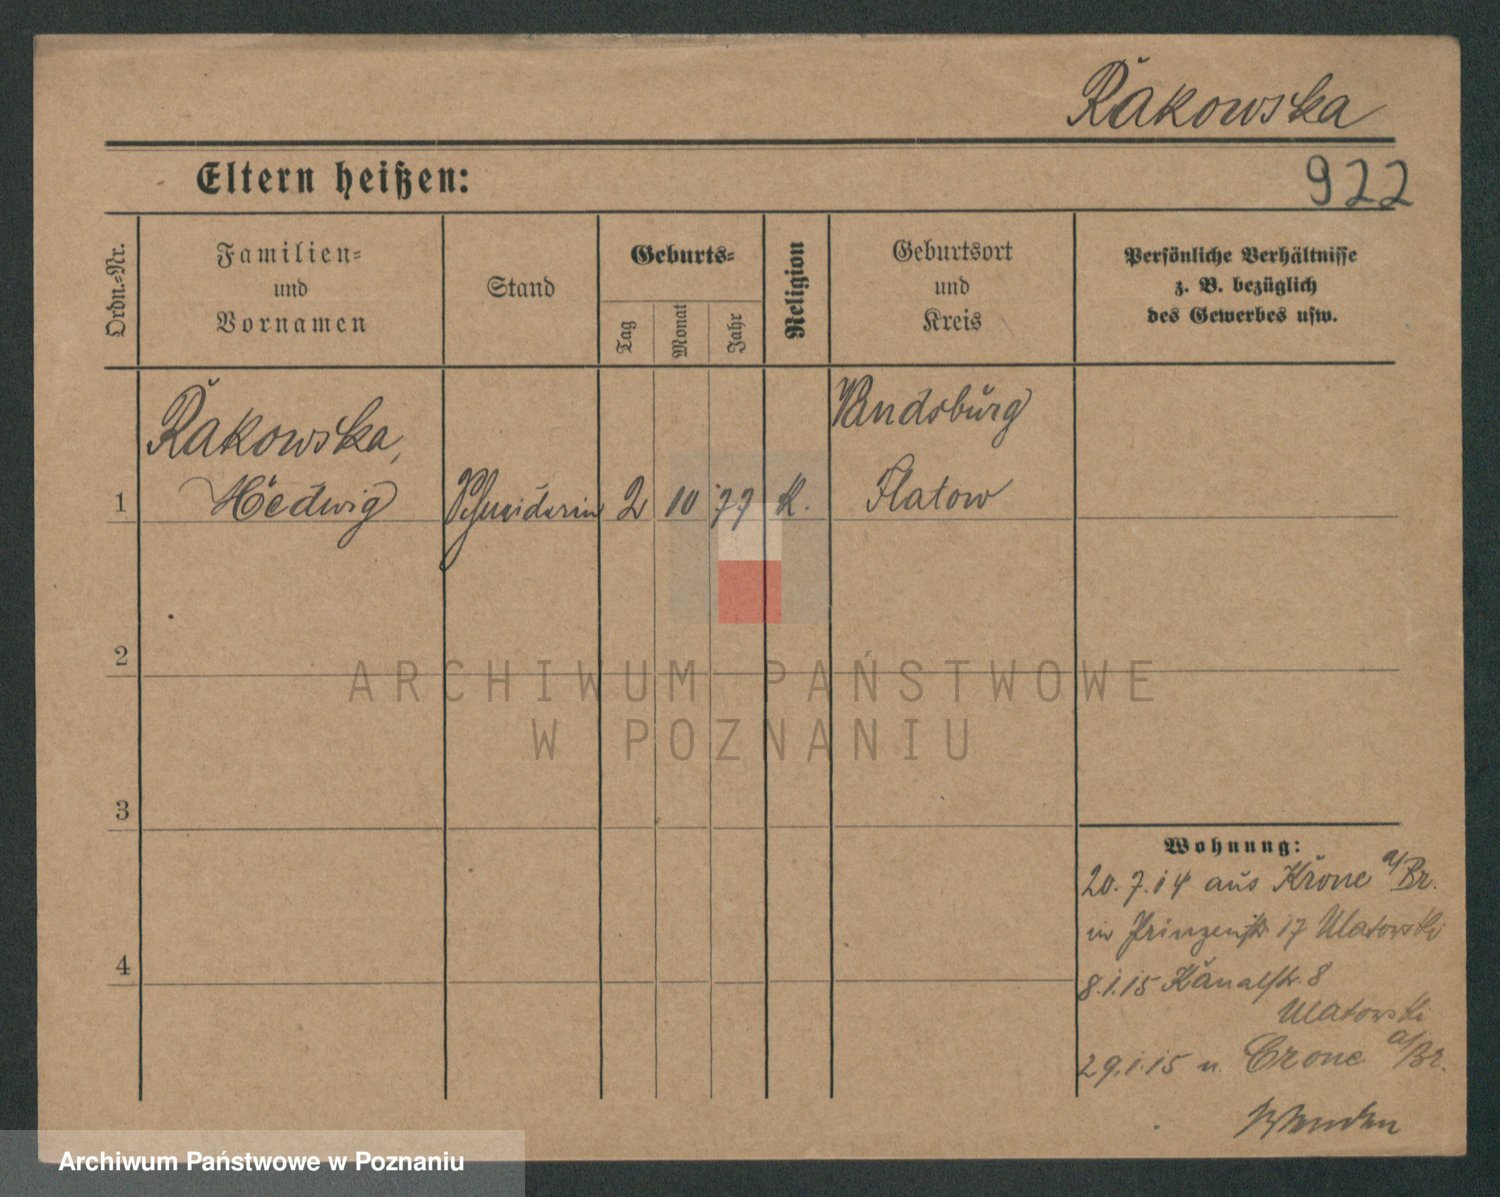 Rakowska
Eltern heißen:
922
Ordn.-Nr.
Familien-
und
Vornamen
Stand
Geburts-
Tag
Monat
Jahr
Religion
Geburtsort
und
Kreis
Persönliche Verhältnisse
z. B. bezüglich
des Gewerbes usw.
Rakowska,
Hedwig
1
Schneiderin
2 10 77 K.
Vandsburg
Flatow
2
3
4
Wohnung:
20.7.14 aus Krone a/Br.
in Prinzenstr. 17 Ulatowski
8.1.15 Kanalstr. 8
Ulatowski
29.1.15 n. Crone a/Br.
ARCHIWUM PAŃSTWOWE
W POZNANIU
Archiwum Państwowe w Poznaniu